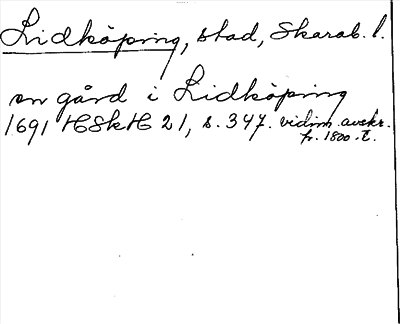 Lidköping, stad, Skarab. l.
en gård i Lidköping
1691 HSkH 21, s. 347. vidim. avskr.
fr. 1800-t.